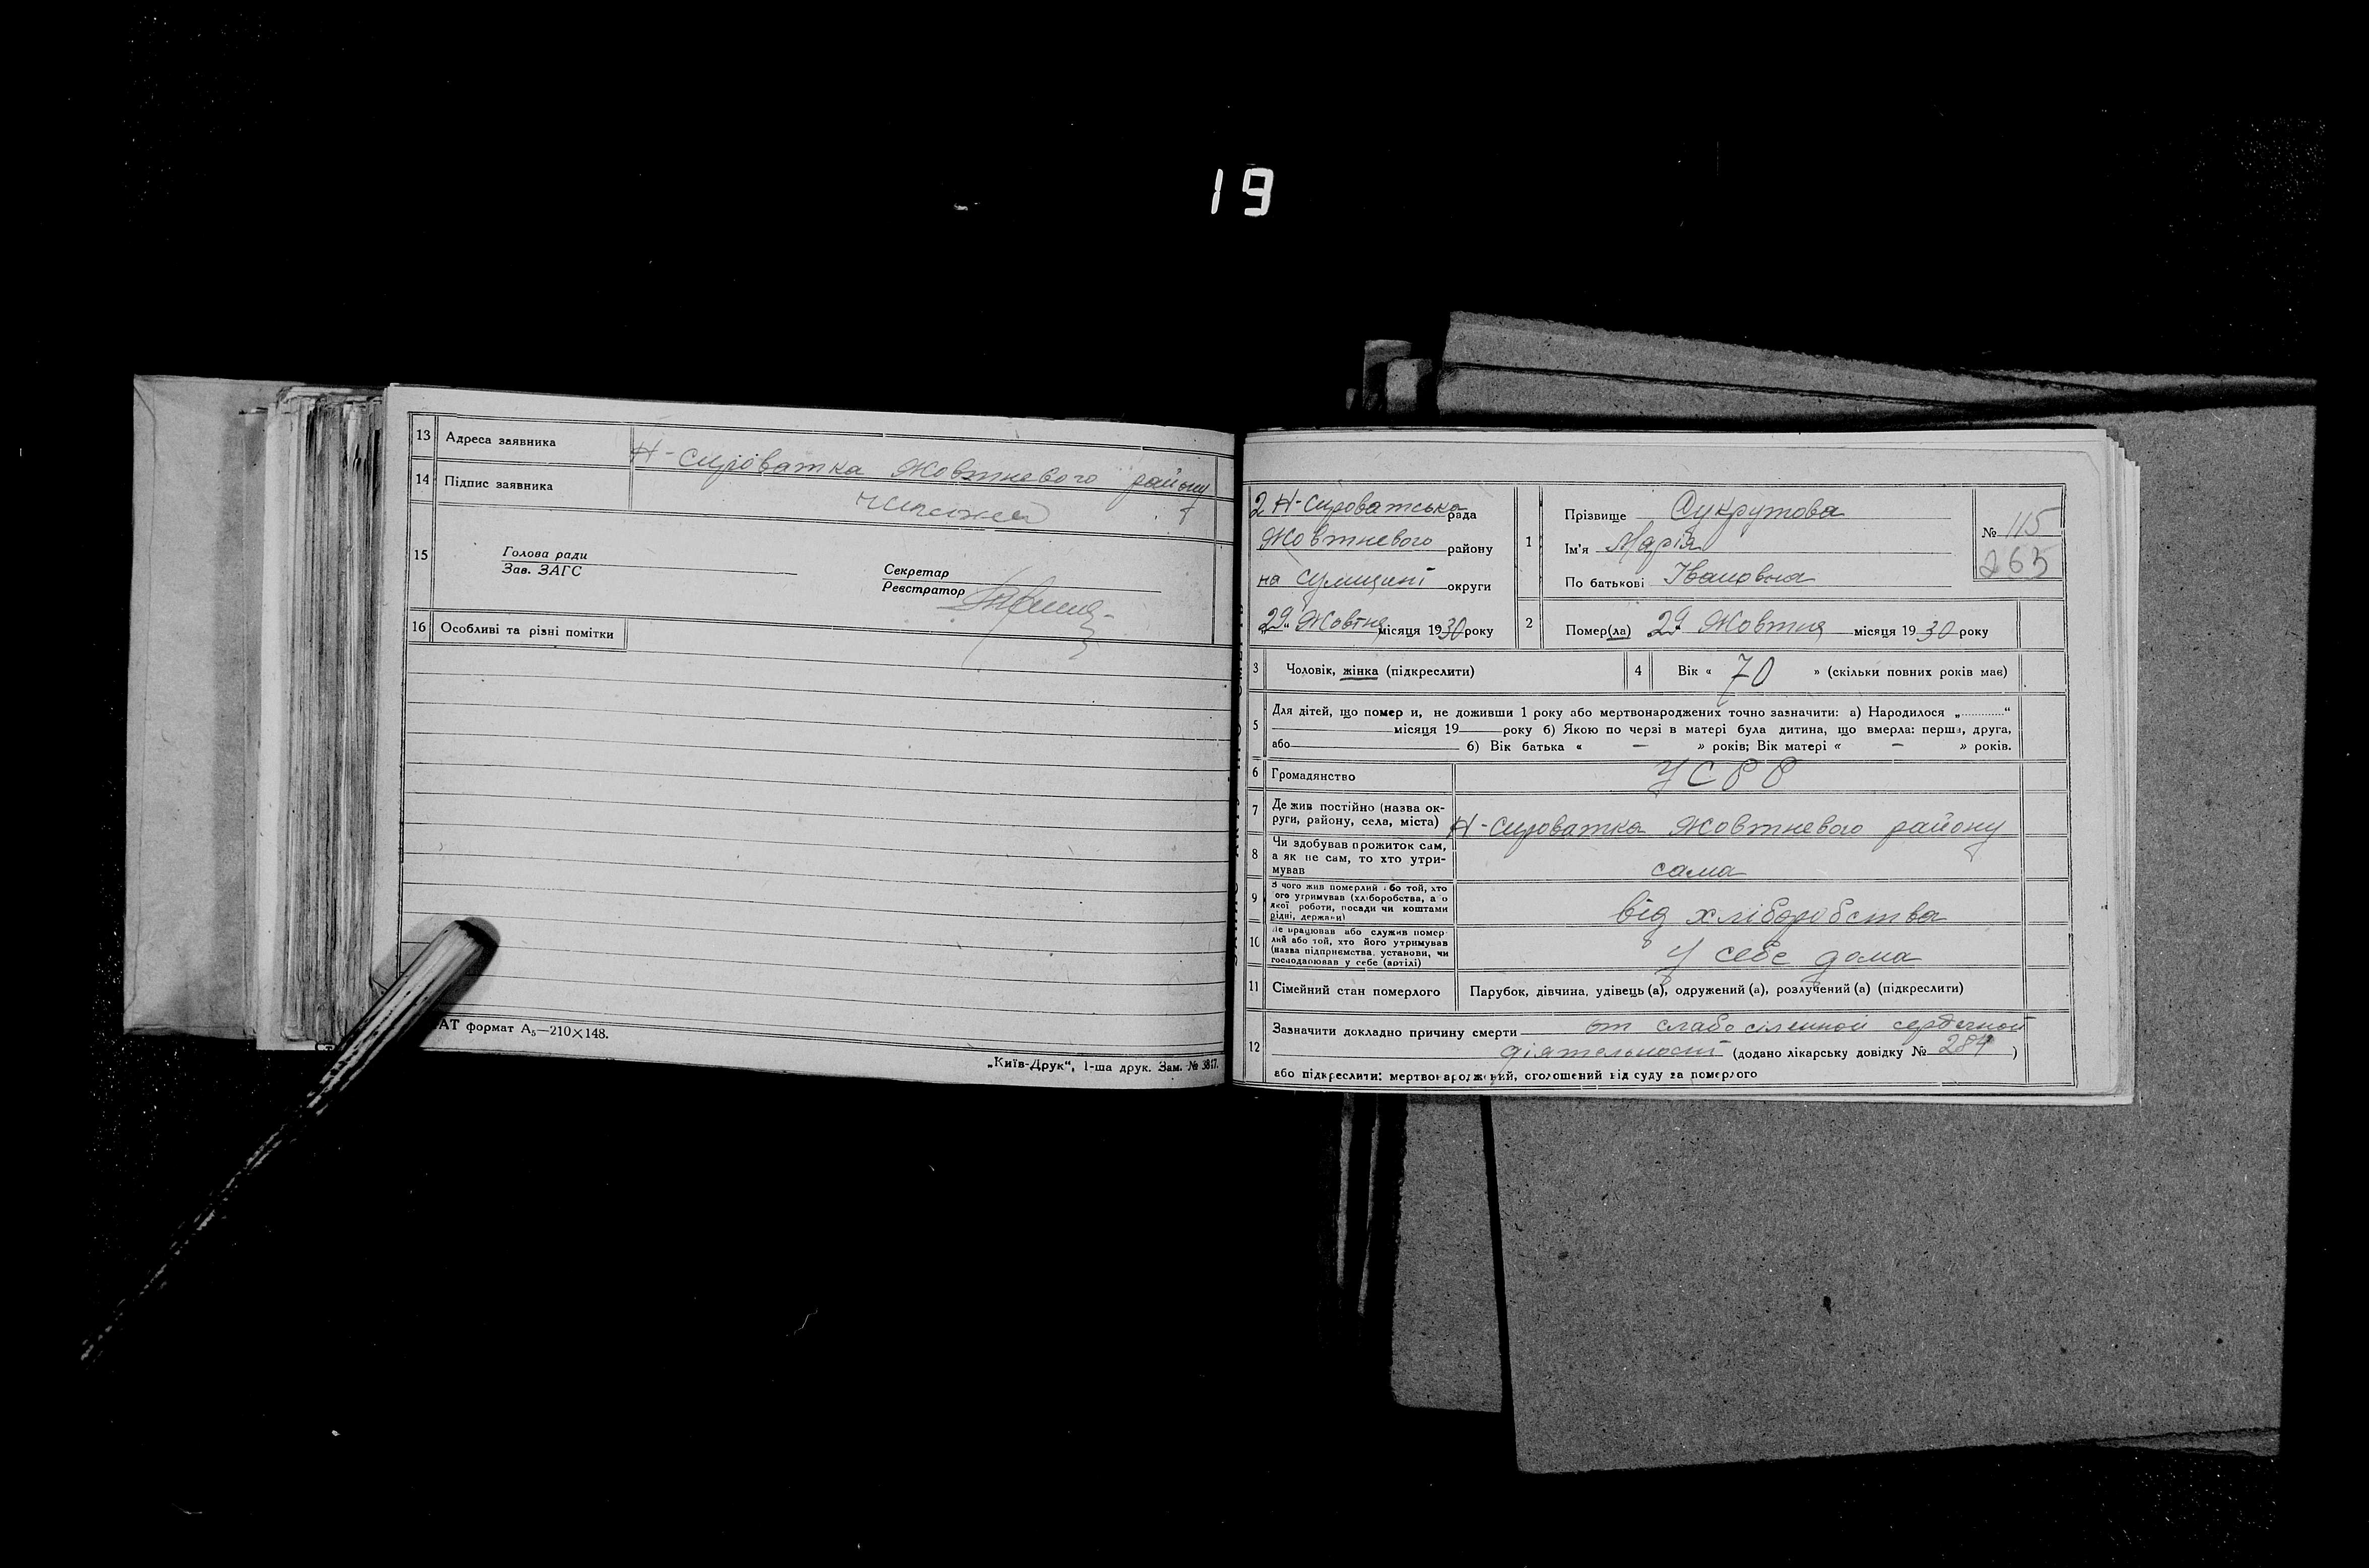 19
13 Адреса заявника Н-Сироватка Жовтневого району
14 Підпис заявника
15 Голова ради
Зав. ЗАГС
Секретар
Реєстратор
16 Особливі та різні помітки
АТ формат А₅—210×148.
„Київ-Друк“, 1-ша друк. Зам. № 3817.
2 Н-Сироватська рада
Жовтневого району
на Сумщині округи
„29“ Жовтня місяця 1930 року
1 Прізвище Сукрутова
Ім'я Марія
По батькові Івановна
№ 115
265
2 Помер(ла) 29 Жовтня місяця 1930 року
3 Чоловік, жінка (підкреслити)
4 Вік « 70 » (скільки повних років має)
5 Для дітей, що помер и, не доживши 1 року або мертвонароджених точно зазначити: а) Народилося „............“
місяця 19 року б) Якою по черзі в матері була дитина, що вмерла: перша, друга,
або б) Вік батька « — » років; Вік матері « — » років.
6 Громадянство УСРР
7 Де жив постійно (назва ок-
руги, району, села, міста) Н-Сироватка Жовтневого району
8 Чи здобував прожиток сам,
а як не сам, то хто утри-
мував сама
9 З чого жив померлий або той, хто
ого утримував (хліборобства, а о
якої роботи, посади чи коштами
рідні, держави) від хліборобства
10 Де працював або служив помер-
лий або той, хто його утримував
(назва підприємства, установи, чи
господарював у себе (артілі) У себе дома
11 Сімейний стан померлого Парубок, дівчина, удівець (а), одружений (а), розлучений (а) (підкреслити)
12 Зазначити докладно причину смерти от слабосіленной сердечной
діятельності (додано лікарську довідку № 284 )
або підкреслити: мертвонароджений, оголошений від суду за померлого